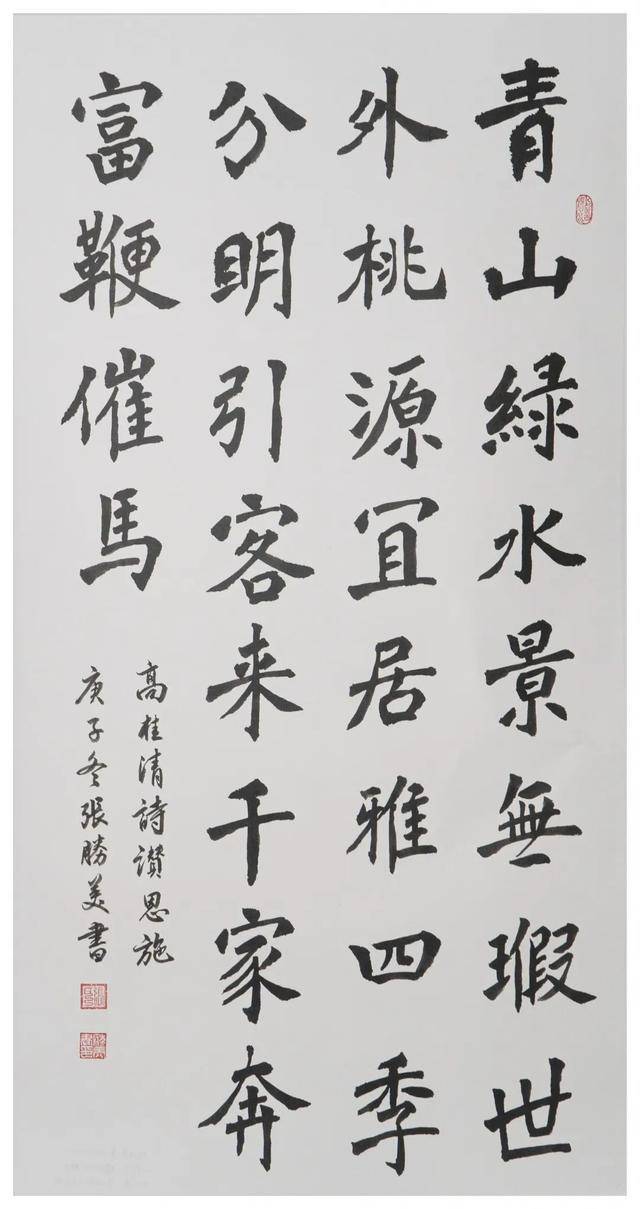 青山綠水景無瑕世
外桃源宜居雅四季
分明引客来千家奔
富鞭催馬
高桂清詩讚恩施
庚子冬張勝美書